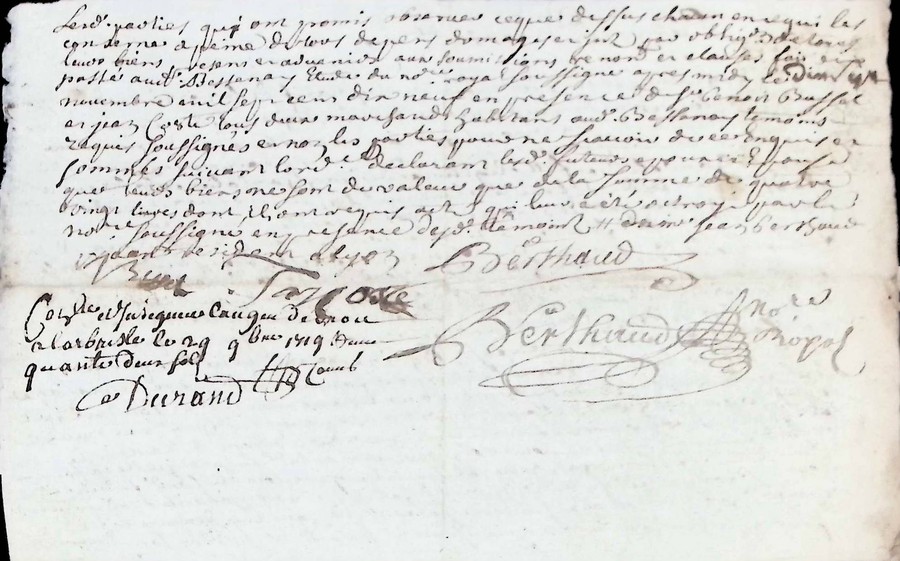 Lesd. parties quy ont promis observer ce que dessus chacun en ce qui les
concerne a peine de tous depens domages et int. par oblig. de tous
leurs biens presens et advenir aux soumissions renon. et clauses fait et
passé aud. Bessenay Etude du no.re royal soussigné apres midy le
novembre mil sept cens dix neuf en presence de S. benoit
et jean Coste tous deux marchand habitant aud. Bessenay temoins
requis soussignes et non les parties pour ne scavoir de ce enquis et
sommés suivant lord. declarant lesd. futeurs epoux et Epouse
que leurs biens ne sont de valeur que de la somme de quatre
vingt livres dont ils ont requis acte qui leur a été octroyé par le
no.re soussigné en presence desd. temoins jean berthaud
a lyon Berthaud
Coste
Con.lé et a l'arbresle le 29 9bre 1719
quante deux sols
Durand
Berthaud no.re Royal